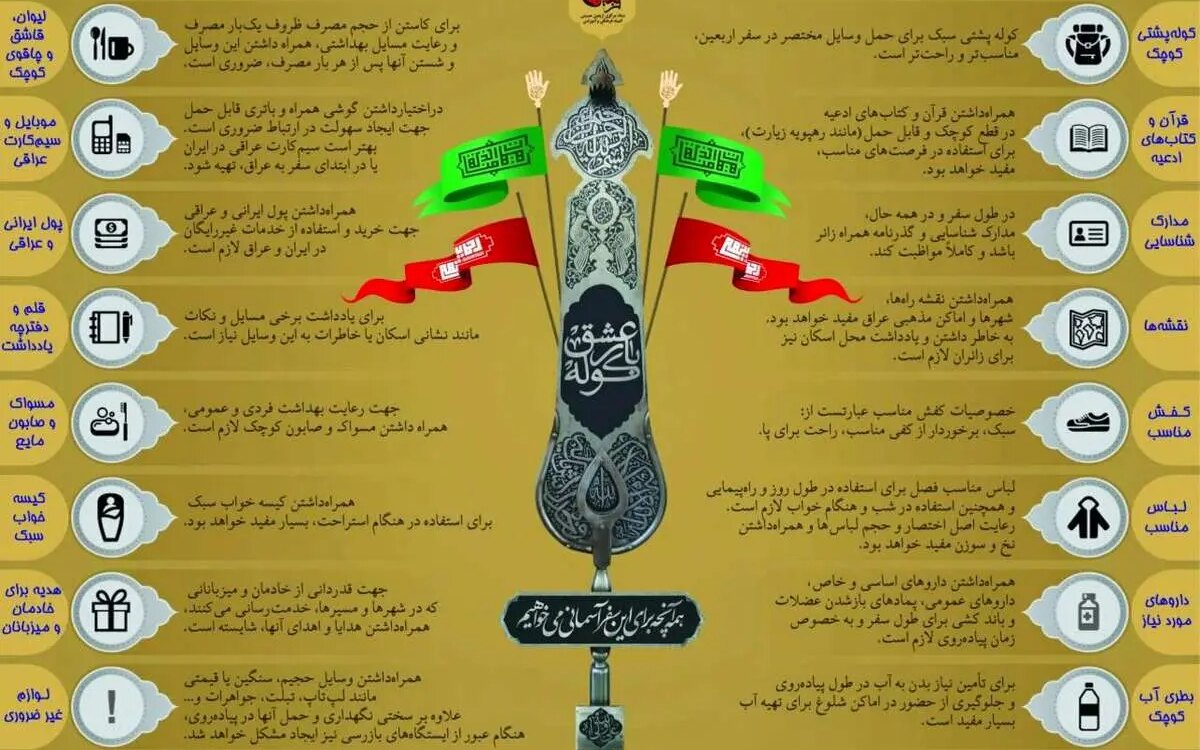 کوله‌پشتی
کوچک
کوله پشتی سبک برای حمل وسایل مختصر در سفر اربعین،
مناسب‌تر و راحت‌تر است.
قرآن و
کتاب‌های
ادعیه
همراه‌داشتن قرآن و کتاب‌های ادعیه
در قطع کوچک و قابل حمل (مانند رهپویه زیارت)،
برای استفاده در فرصت‌های مناسب،
مفید خواهد بود.
مدارک
شناسایی
در طول سفر و در همه حال،
مدارک شناسایی و گذرنامه همراه زائر
باشد و کاملاً مواظبت کند.
نقشه‌ها
همراه‌داشتن نقشه راه‌ها،
شهرها و اماکن مذهبی عراق مفید خواهد بود.
به خاطر داشتن و یادداشت محل اسکان نیز
برای زائران لازم است.
کفش
مناسب
خصوصیات کفش مناسب عبارتست از:
سبک، برخوردار از کفی مناسب، راحت برای پا.
لباس
مناسب
لباس مناسب فصل برای استفاده در طول روز و راه‌پیمایی
و همچنین استفاده در شب و هنگام خواب لازم است.
رعایت اصل اختصار و حجم لباس‌ها و همراه‌داشتن
نخ و سوزن مفید خواهد بود.
داروهای
مورد نیاز
همراه‌داشتن داروهای اساسی و خاص،
داروهای عمومی، پمادهای بازشدن عضلات
و باند کشی برای طول سفر و به خصوص
زمان پیاده‌روی لازم است.
بطری آب
کوچک
برای تأمین نیاز بدن به آب در طول پیاده‌روی
و جلوگیری از حضور در اماکن شلوغ برای تهیه آب
بسیار مفید است.
عشق
کوله بار
همه آنچه برای این سفر آسمانی می‌خواهیم
لیوان،
قاشق
و چاقوی
کوچک
برای کاستن از حجم مصرف ظروف یک‌بار مصرف
و رعایت مسایل بهداشتی، همراه داشتن این وسایل
و شستن آنها پس از هر بار مصرف، ضروری است.
موبایل و
سیم‌کارت
عراقی
دراختیارداشتن گوشی همراه و باتری قابل حمل
جهت ایجاد سهولت در ارتباط ضروری است.
بهتر است سیم‌کارت عراقی در ایران
یا در ابتدای سفر به عراق، تهیه شود.
پول ایرانی
و عراقی
همراه‌داشتن پول ایرانی و عراقی
جهت خرید و استفاده از خدمات غیررایگان
در ایران و عراق لازم است.
قلم و
دفترچه
یادداشت
برای یادداشت برخی مسایل و نکات
مانند نشانی اسکان یا خاطرات به این وسایل نیاز است.
مسواک
و صابون
مایع
جهت رعایت بهداشت فردی و عمومی،
همراه داشتن مسواک و صابون کوچک لازم است.
کیسه
خواب
سبک
همراه‌داشتن کیسه خواب سبک
برای استفاده در هنگام استراحت، بسیار مفید خواهد بود.
هدیه برای
خادمان
و میزبانان
جهت قدردانی از خادمان و میزبانانی
که در شهرها و مسیرها، خدمت‌رسانی می‌کنند،
همراه‌داشتن هدایا و اهدای آنها، شایسته است.
لوازم
غیر ضروری
همراه‌داشتن وسایل حجیم، سنگین یا قیمتی
مانند لپ‌تاپ، تبلت، جواهرات و...
علاوه بر سختی نگهداری و حمل آنها در پیاده‌روی،
هنگام عبور از ایستگاه‌های بازرسی نیز ایجاد مشکل خواهد شد.